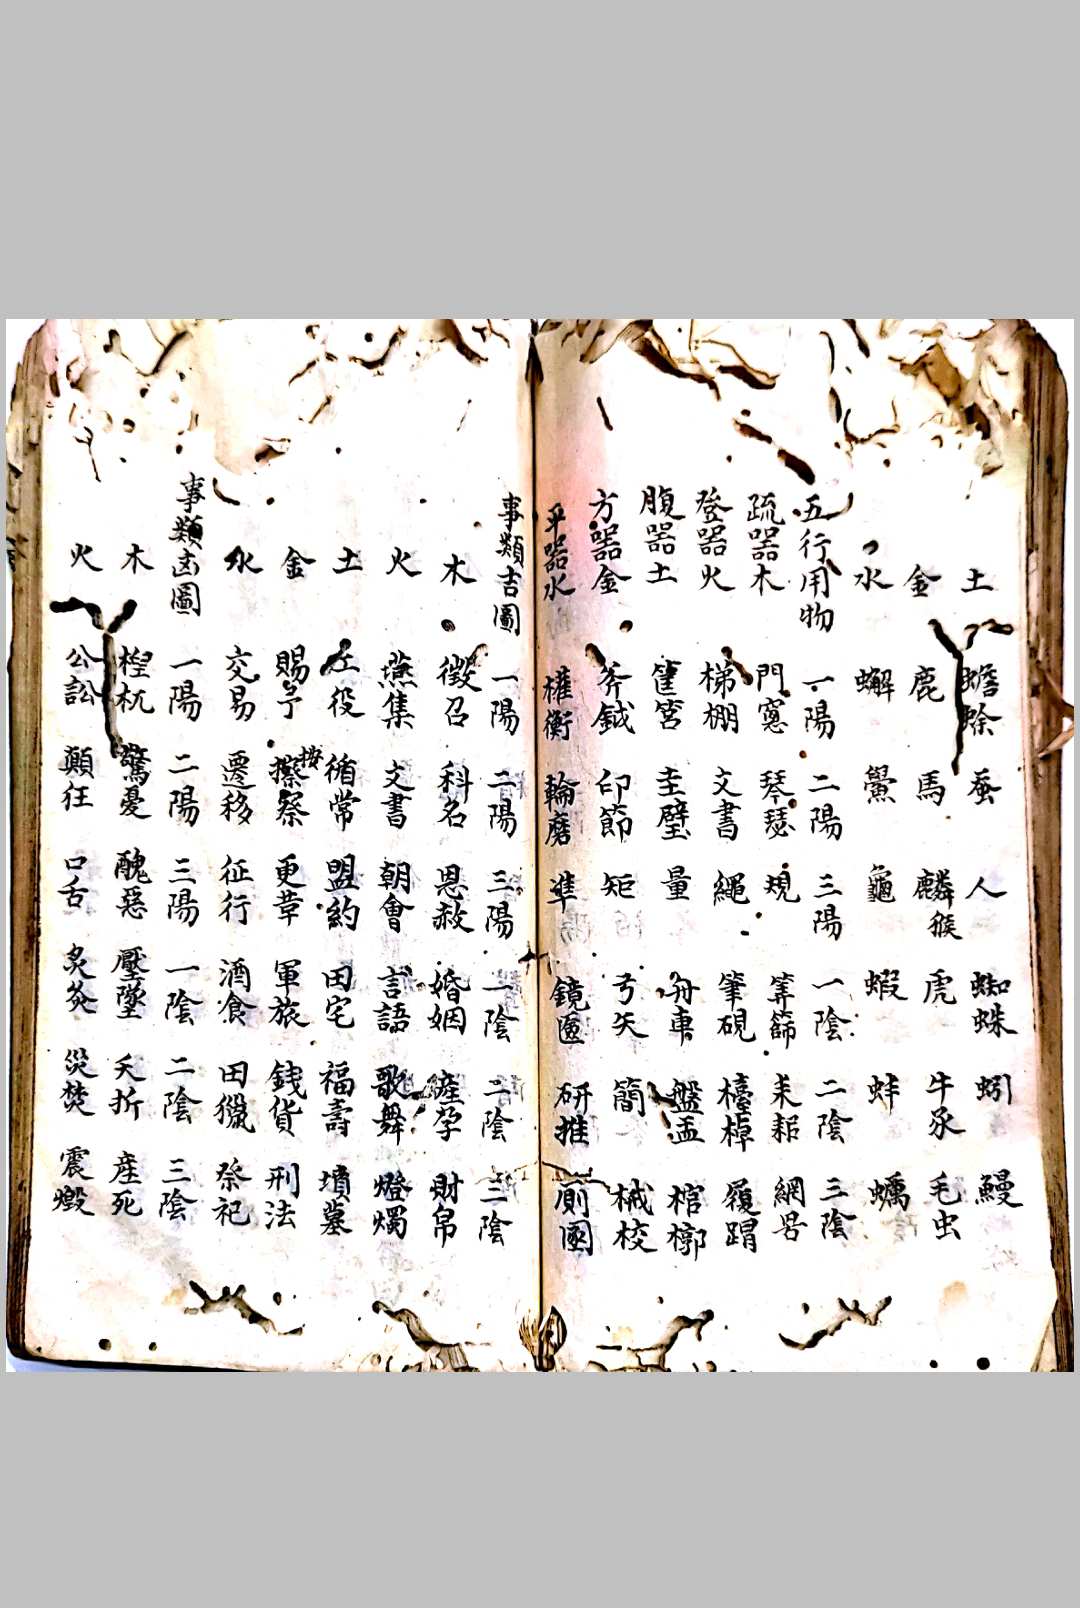 土 蟾蜍 蚕 人 蜘蛛 蚓 鰻
金 鹿 馬 麟猴 虎 牛豕 毛虫
水 蠏 鱟 龜 蝦 蚌 蠣
五行用物 一陽 二陽 三陽 一陰 二陰 三陰
疏器木 門窓 琴瑟 規 筭篩 耒耜 網罟
登器火 梯棚 文書 繩 筆硯 檯棹 履
腹器土 筐筥 圭璧 量 舟車 盤盂 棺槨
方器金 斧鉞 印節 矩 弓矢 簡 械校
平器水 權衡 輪磨 準 鏡匳 研推 厠圂
事類吉圖 一陽 二陽 三陽 一陰 二陰 三陰
木 徵召 科名 恩赦 婚姻 產孕 財帛
火 燕集 文書 朝會 言語 歌舞 燈燭
土 工役 循常 盟約 田宅 福壽 墳墓
金 賜予 按察 更革 軍旅 銭貨 刑法
水 交易 遷移 征行 酒食 田獵 祭祀
事類凶圖 一陽 二陽 三陽 一陰 二陰 三陰
木 桎杌 驚憂 醜惡 壓墜 夭折 產死
火 公訟 顛狂 口舌 炙灸 災焚 震燬